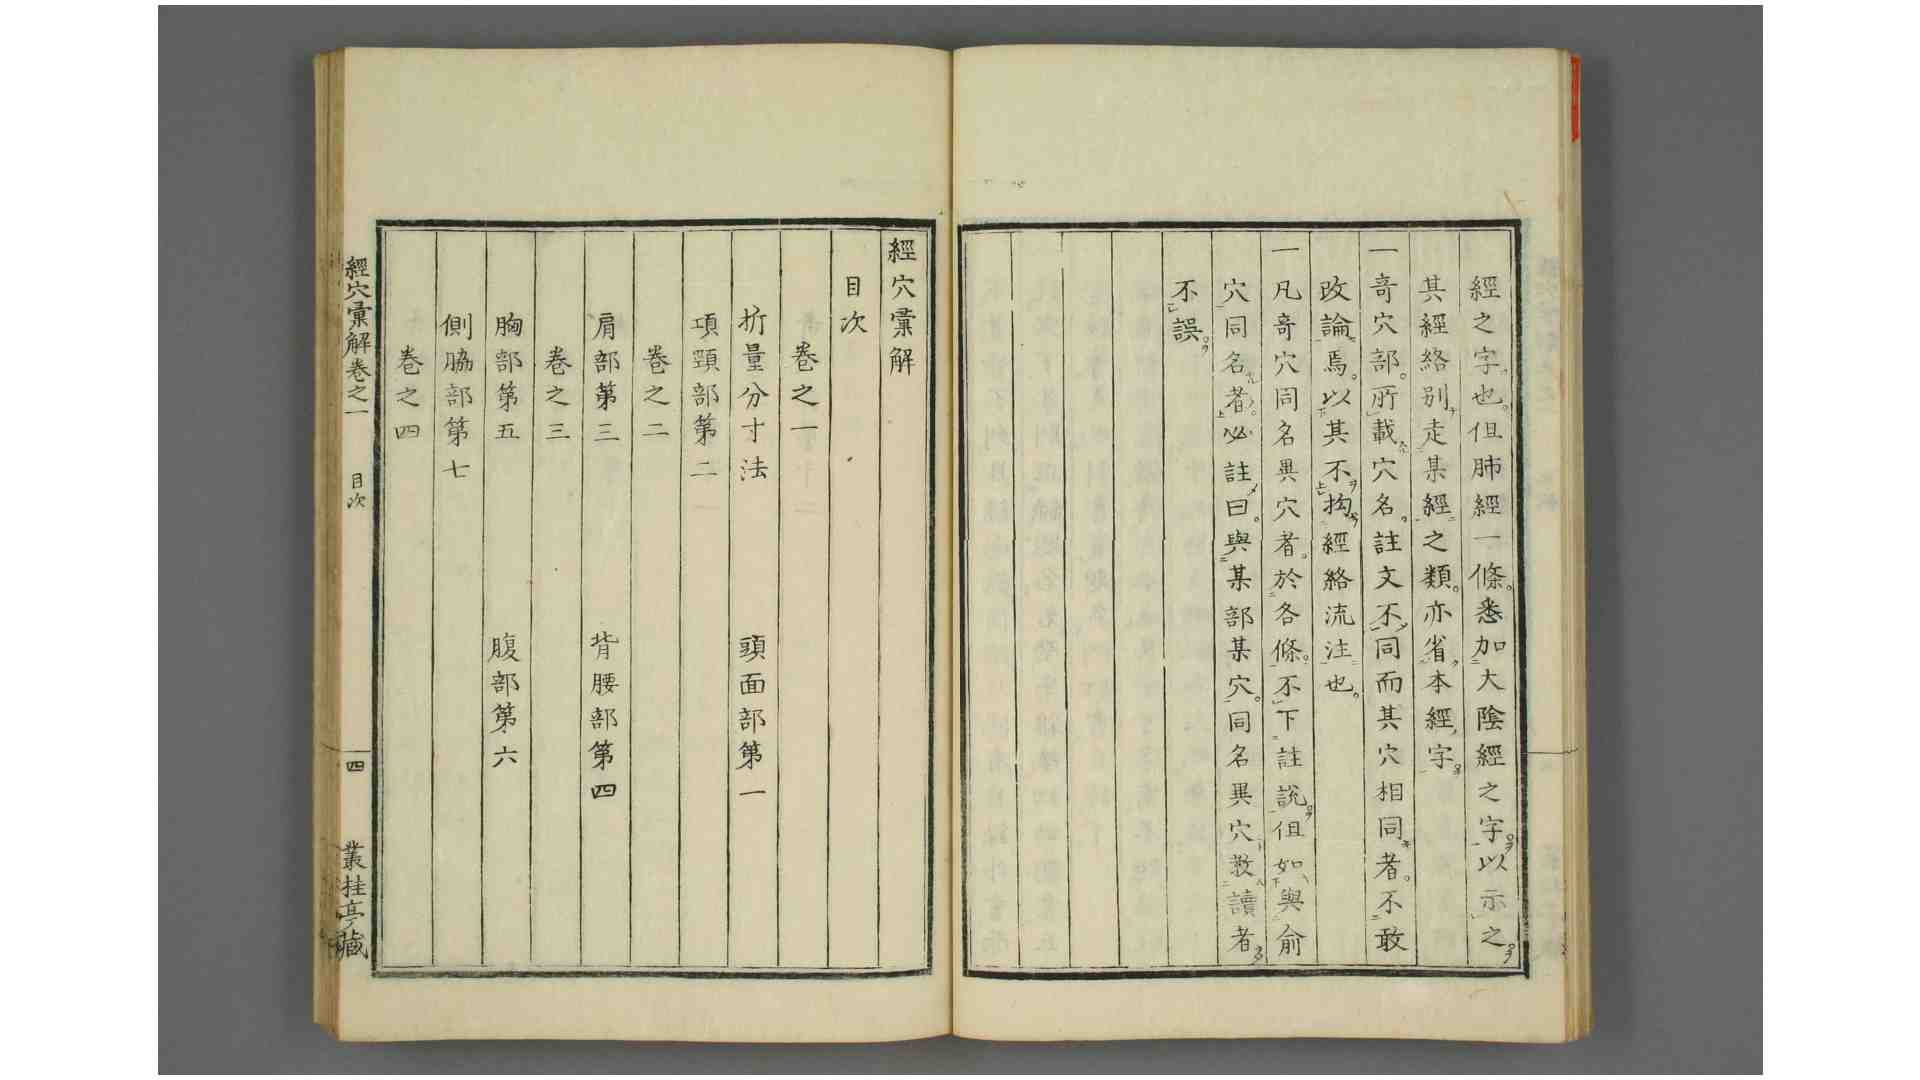 經之字也。但肺經一條。悉加大陰經之字。以示之。
其經絡別走某經之類。亦省本經字
一奇穴部。所載穴名。註文不同而其穴相同者。不敢
改論焉。以其不拘經絡流注也。
一凡奇穴同名異穴者。於各條。不下註說。但如與俞
穴同名者。必註曰。與某部某穴。同名異穴教讀者
不誤。
經穴彙解
目次
卷之一
折量分寸法 頭面部第一
項頸部第二
卷之二
肩部第三 背腰部第四
卷之三
胸部第五 腹部第六
側脇部第七
卷之四
經穴彙解卷之一 目次 四 叢桂亭藏